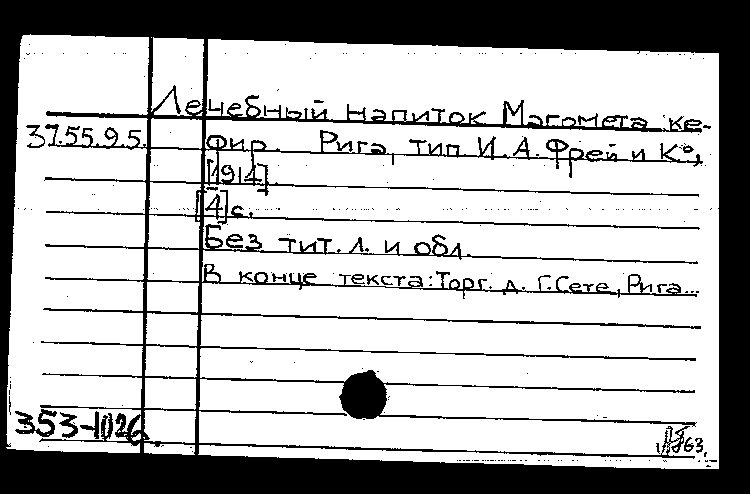 Лечебный напиток Магомета ке-
37.55.9.5. фир. Рига, тип И. А. Фрей и К°,
[1914].
[4] с.
Без тит. л. и обл.
В конце текста: Торг. д. Г. Сете, Рига...
353-1026.
63.